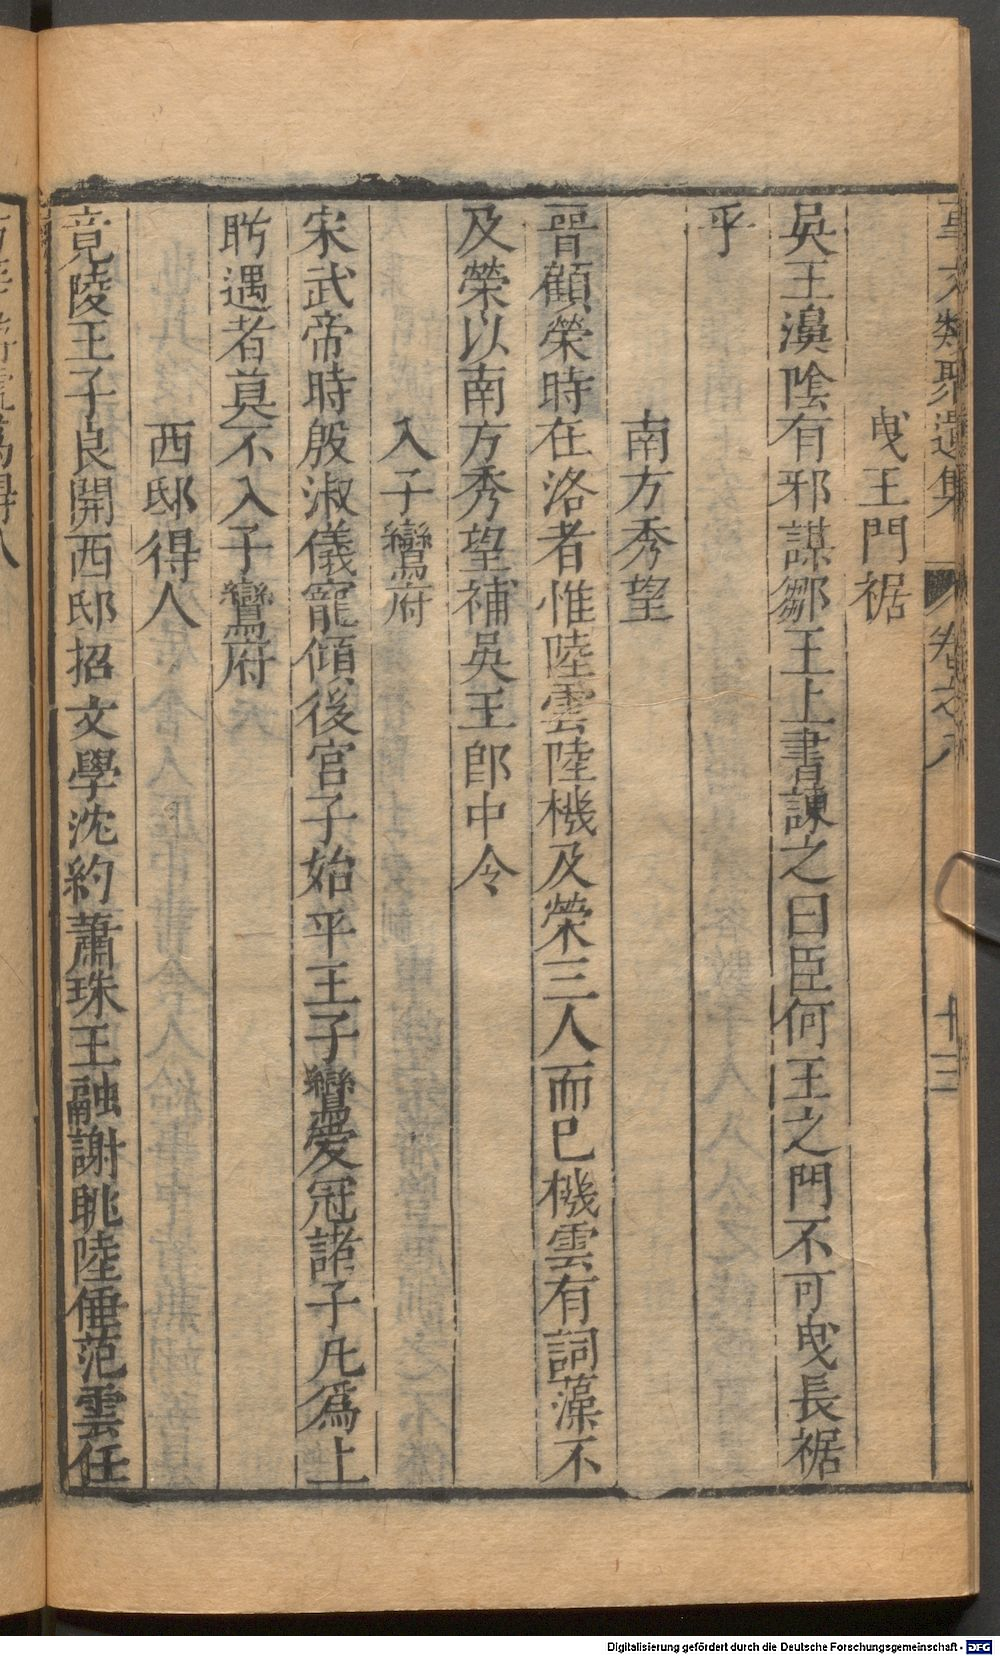 事文類聚遺集 卷之八 十三
曳王門裾
吳王濞陰有邪謀鄒王上書諫之曰臣何王之門不可曳長裾
乎
南方秀望
晉顧榮時在洛者惟陸雲陸機及榮三人而已機雲有詞藻不
及榮以南方秀望補吳王郎中令
入子鸞府
宋武帝時殷淑儀寵傾後宮子始平王子鸞愛冠諸子凡爲上
眄遇者莫不入子鸞府
西邸得人
竟陵王子良開西邸招文學沈約蕭珠王融謝眺陸倕范雲任
Digitalisierung gefördert durch die Deutsche Forschungsgemeinschaft - DFG